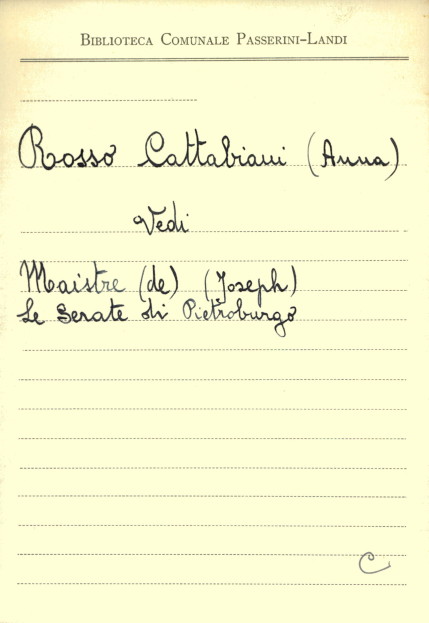 Biblioteca Comunale Passerini-Landi
Rosso Cattabiani (Anna)
Vedi
Maistre (de) (Joseph)
Le Serate di Pietroburgo
C